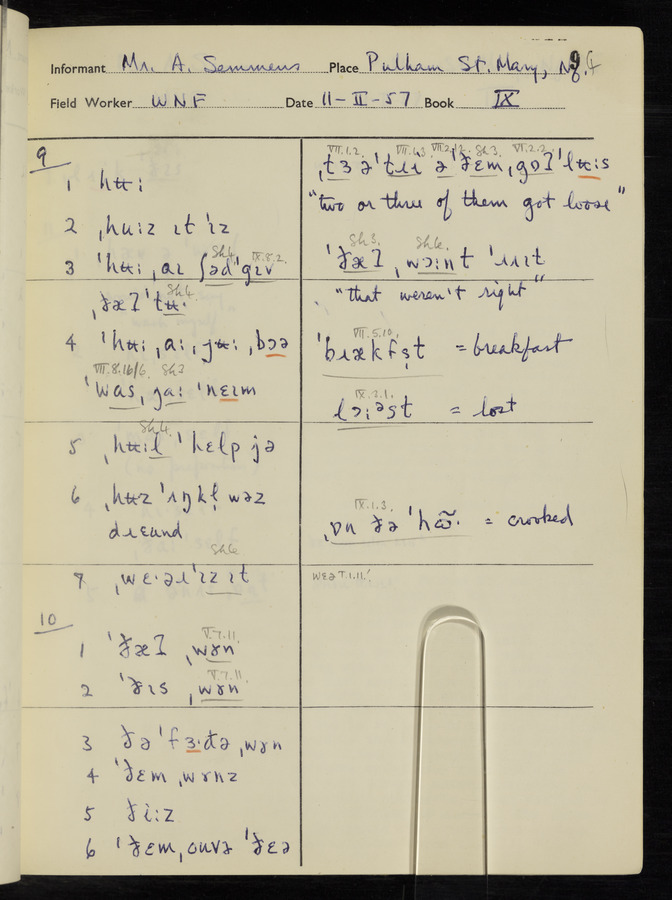 Informant Mr. A. Semmens Place Pulham St. Mary, Nf. 9
Field Worker WNF Date 11-II-57 Book IX
9
1 hʉː
2 ˌhuːz ɪt ˈɪz
Sh4. IX.8.2.
3 ˈhʉː ˌaɪ ʃəd ˈgɪv
Sh4
ˌðæʔ ˈtʉ·
4 ˈhʉː ˌaː ˌjʉː ˌbɔə
VII.8.16/6. Sh3
ˈwas ˌjaː ˈnɛɪm
Sh4.
5 ˌhʉːl ˈhɛlp jə
6 ˌhʉz ˈʌŋkl̩ wəz
dɹɛund
Sh6
7 ˌwɛ·əɹ ˈɪz ɪt
10
V.7.11.
1 ˈðæʔ ˌwɤn
V.7.11
2 ˈðɪs ˌwɤn
3 ðə ˈfɜ·ðə ˌwɤn
4 ˈðɛm ˌwɤnz
5 ðiːz
6 ˈðɛm ˌouvə ˈðɛə
VII.1.2. VII.1.3. VII.2.12. Sh3. VI.2.2.
ˌtɜ ə ˈtɹɪ ə ˈðɛm ˌgɒʔ ˈlʉːs
"two or three of them got loose"
Sh3. Sh6.
ˈðæʔ ˌwɔːnt ˈɹʌɪt
"that weren't right"
VII.5.10.
ˈbɹækfs̩t = breakfast
IX.2.1.
lɔːəst = lost
IX.1.3.
ˌɒn ðə ˈhɷ̃· = crooked